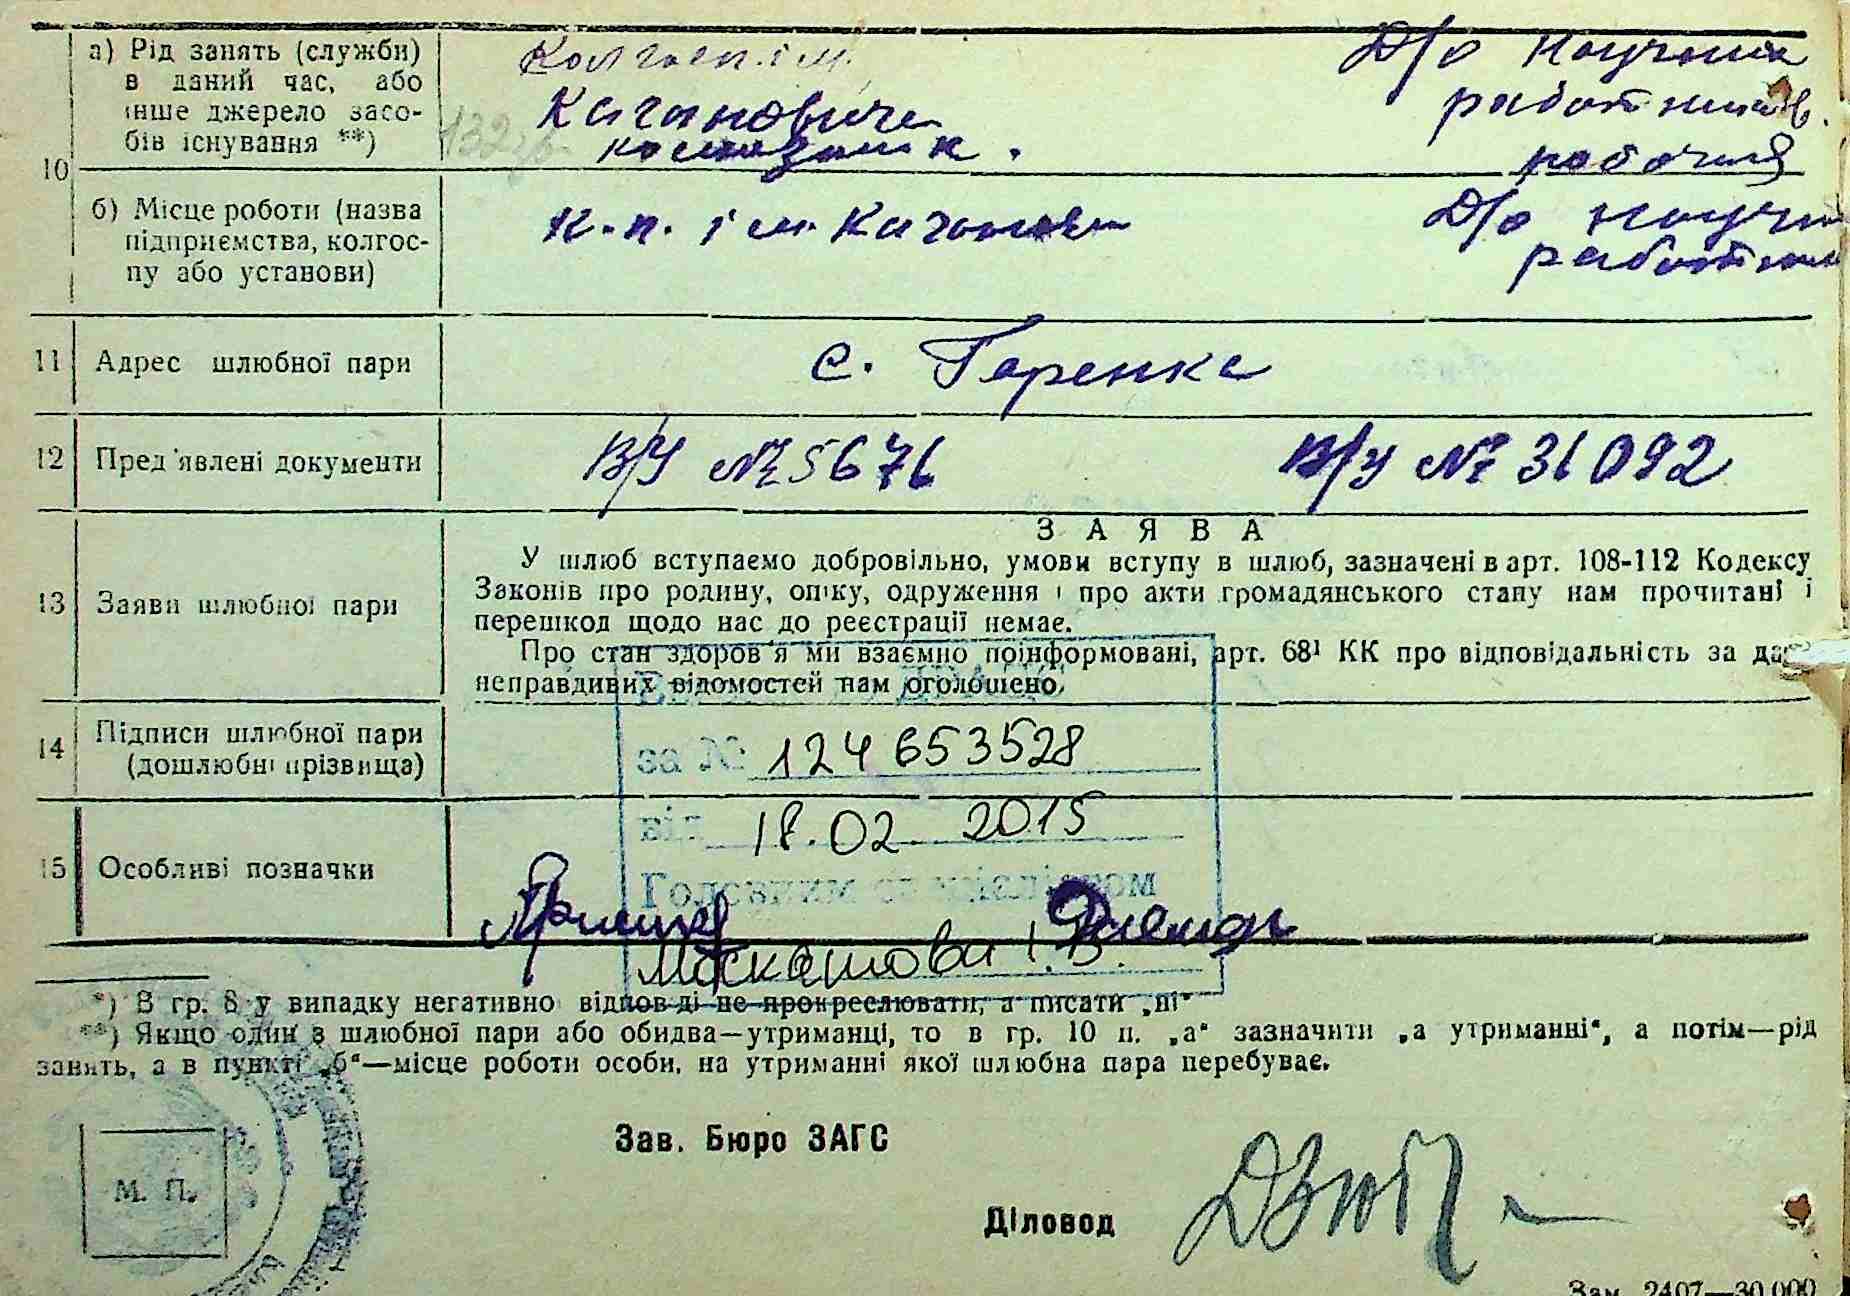 10
а) Рід занять (служби)
в даний час, або
інше джерело засо-
бів існування **)
Колгосп. ім.
Кагановича
Д/о научних
работников.
робочая
б) Місце роботи (назва
підприємства, колгос-
пу або установи)
к.п. ім. Каганович
Д/о научн
работник
11 Адрес шлюбної пари
с. Горенка
12 Пред'явлені документи
В/У № 5676 В/У № 36092
13 Заяви шлюбної пари
ЗАЯВА
У шлюб вступаємо добровільно, умови вступу в шлюб, зазначені в арт. 108-112 Кодексу
Законів про родину, опіку, одруження і про акти громадянського стану нам прочитані і
перешкод щодо нас до реєстрації немає.
Про стан здоров'я ми взаємно поінформовані, арт. 68¹ КК про відповідальність за дач
неправдивих відомостей нам оголошено.
14 Підписи шлюбної пари
(дошлюбні прізвища)
за № 124653528
від 18.02. 2015
15 Особливі позначки
*) В гр. 8 у випадку негативно відповіді не прокреслювати, а писати „ні"
**) Якщо один з шлюбної пари або обидва—утриманці, то в гр. 10 п. „а" зазначити „а утриманні", а потім—рід
занять, а в пункті „б"—місце роботи особи, на утриманні якої шлюбна пара перебуває.
М. П.
Зав. Бюро ЗАГС
Діловод
Зам. 2407—30.000